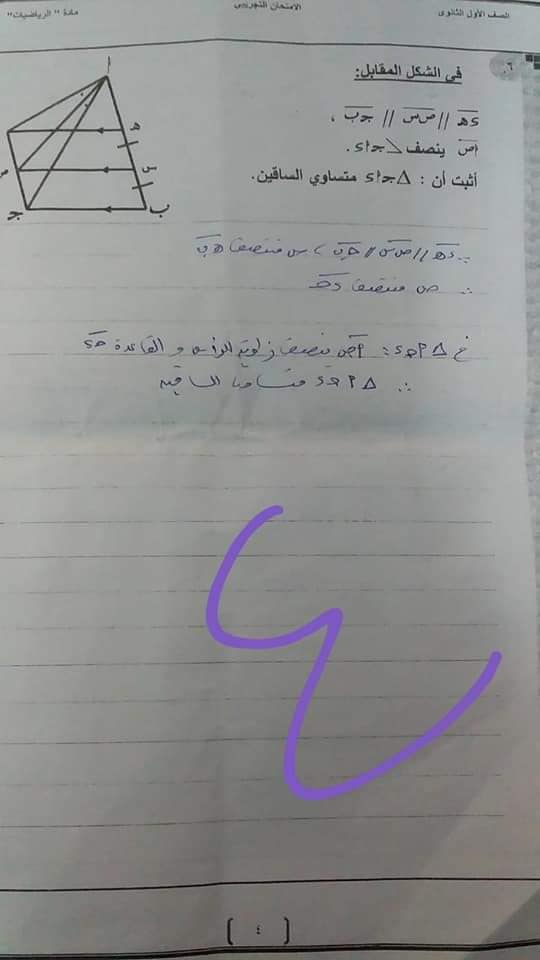 الصف الأول الثانوى
الامتحان التجريبى
مادة " الرياضيات "
٦.
فى الشكل المقابل:
ءهـ // ص س // جـ ب ،
اص ينصف ⦣ جـ ا ء .
أثبت أن : Δ جـ ا ء متساوي الساقين.
ا
هـ
س
ب
جـ
∵ ءهـ // ص س // جـ ب ، س منتصف هـ ب
∴ ص منتصف ء جـ
فى Δ ا جـ ء : اص ينصف زاوية الرأس و القاعدة جـ ء
∴ Δ ا جـ ء متساوى الساقين
[ ٤ ]